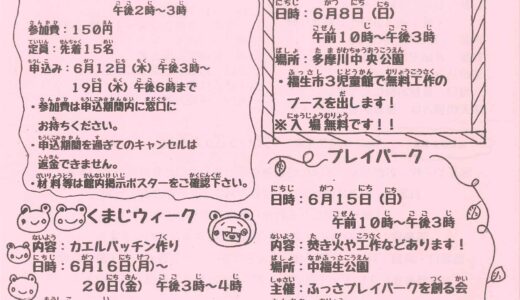 午後2時～3時
参加費：150円
定員：先着15名
申込み：6月12日（木）午後3時～
19日（木）午後6時まで
・参加費は申込期間内に窓口に
お持ちください。
・申込期間を過ぎてのキャンセルは
返金できません。
・材料等は館内掲示ポスターをご確認下さい。
くまじウィーク
内容：カエルパッチン作り
日時：6月16日（月）～
20日（金）午後3時～4時
日時：6月8日（日）
午前10時～午後3時
場所：多摩川中央公園
・福生市3児童館で無料工作の
ブースを出します！
※入場無料です！！
プレイパーク
日時：6月15日（日）
午前10時～午後3時
内容：焚き火や工作などあります！
場所：中福生公園
主催：ふっさプレイパークを創る会